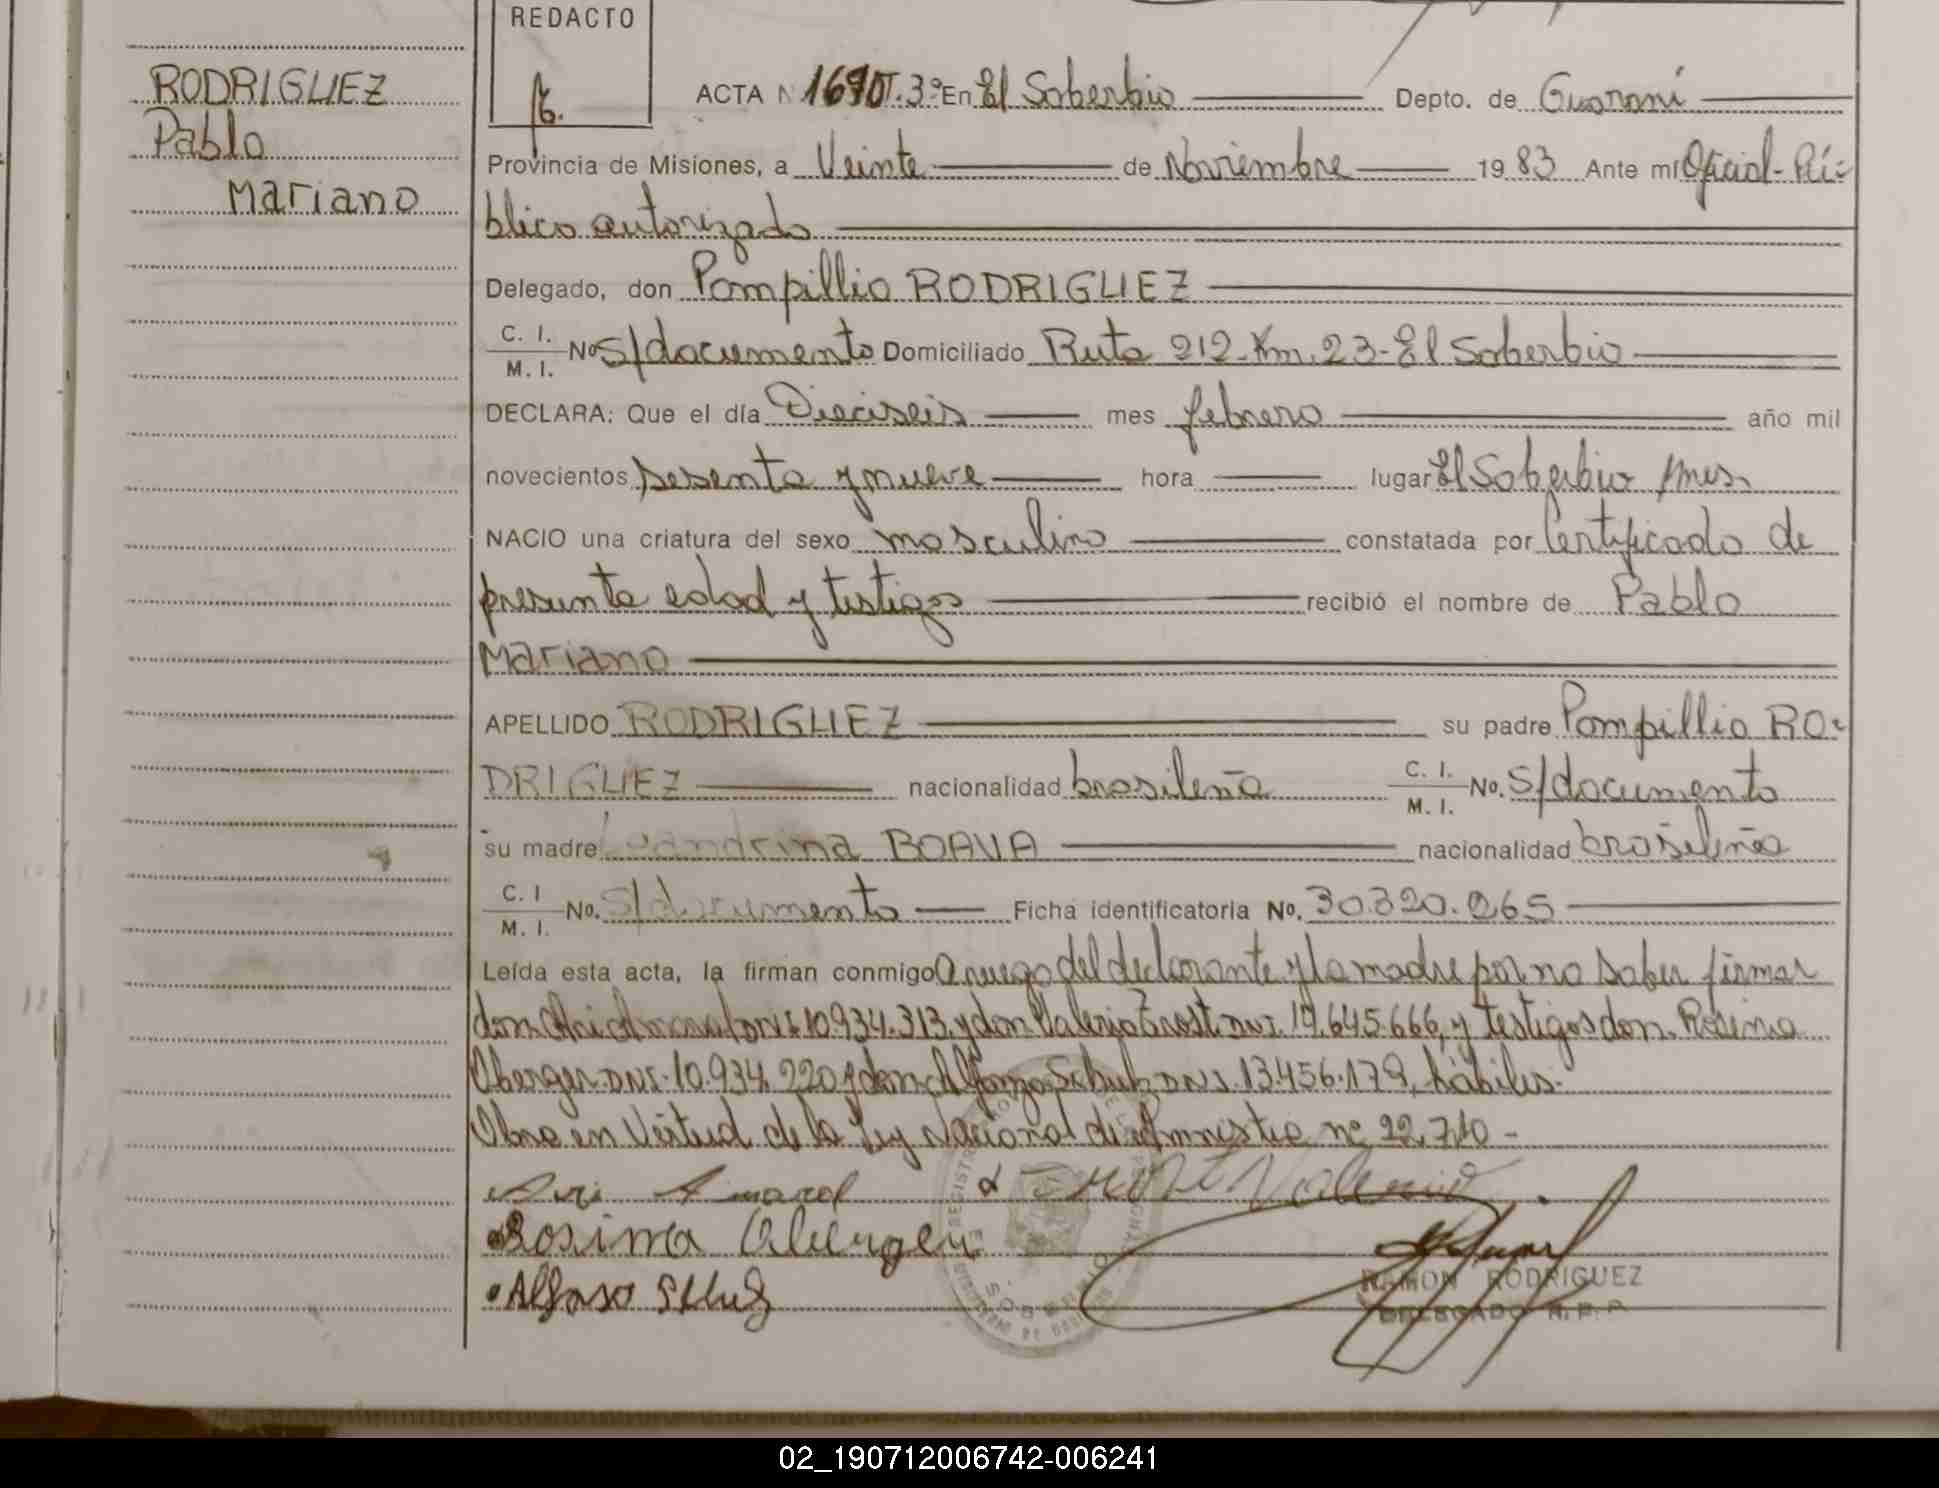 REDACTO
RODRIGUEZ
Pablo
Mariano
ACTA N 1690 T. 3º En El Soberbio Depto. de Guaraní
Provincia de Misiones, a Veinte de Noviembre 19 83 Ante mí Oficial-Pú-
blico autorizado
Delegado, don Pompillio RODRIGUEZ
C. I.
M. I. No S/documento Domiciliado Ruta 212-Km. 23-El Soberbio
DECLARA: Que el día Dieciseis mes febrero año mil
novecientos sesenta y nueve hora lugar El Soberbio Mnes.
NACIO una criatura del sexo masculino constatada por Certificado de
presunta edad y testigos recibió el nombre de Pablo
Mariano
APELLIDO RODRIGUEZ su padre Pompillio RO-
DRIGUEZ nacionalidad brasileña C. I.
M. I. No. S/documento
su madre BOAVA nacionalidad brasileña
C. I
M. I. No. S/documento Ficha identificatoria No. 30.820.265
Leída esta acta, la firman conmigo a ruego del declarante y la madre por no saber firmar
don DNI 10.934.313, y don Valerio DNI. 17.645.666, y testigos don. Rosima
DNI. 10.934.220 y don Alfonso DNI. 13.456.179, hábiles.
Obra en Virtud de la Ley Nacional de Amnistia nº 22.710 -
Amarol Valerio
Rosima
Alfonso
RAMON RODRIGUEZ
DELEGADO R. P. P.
02_190712006742-006241